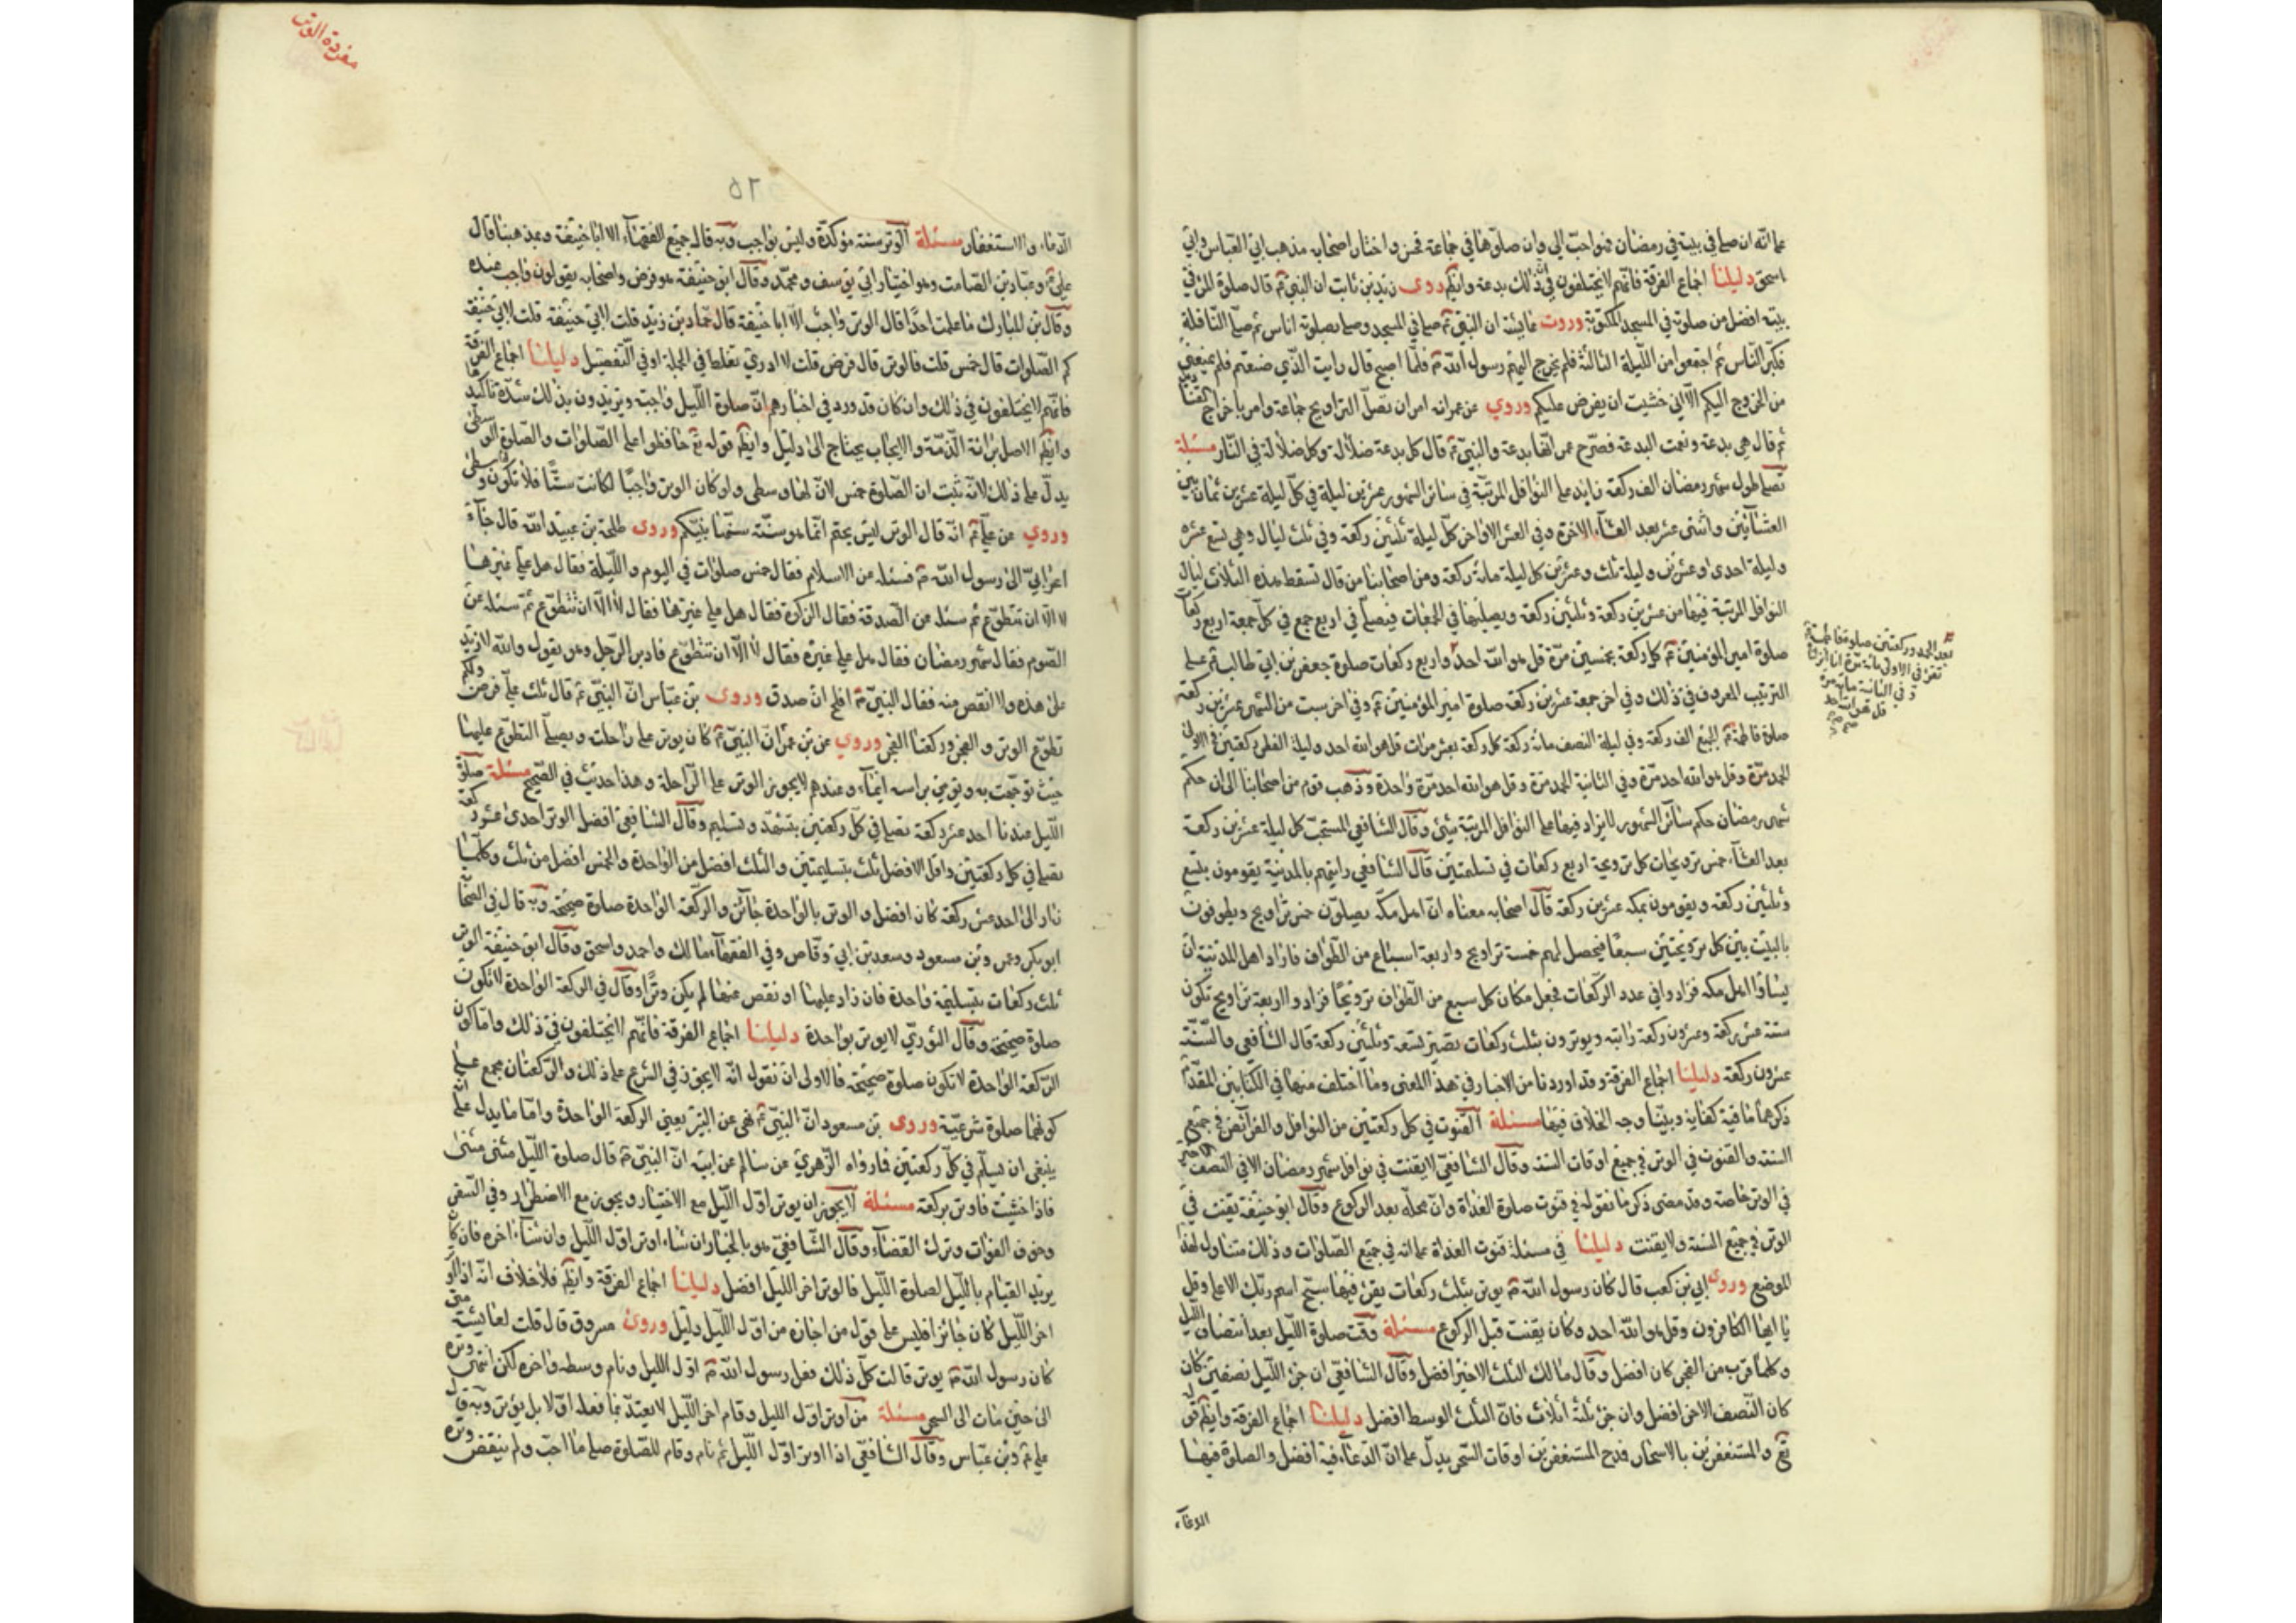 على انه ان صلى في بيته في رمضان فهو احب الي وان صلوها في جماعة فحسن واختار اصحابه مذهب ابي العباس وابي
اسحق دليلنا اجماع الفرقة فانهم لا يختلفون في ان ذلك بدعة وايضا روى زيد بن ثابت ان النبي ص قال صلوة المرء في
بيته افضل من صلوته في المسجد الا المكتوبة وروت عايشة ان النبي ص صلى في المسجد وصلى بصلوته اناس ثم صلى النافلة
فكبر الناس ثم اجتمعوا من الليلة الثالثة فلم يخرج اليهم رسول الله ص فلما اصبح قال رايت الذي صنعتم فلم يمنعني
من الخروج اليكم الا اني خشيت ان يفرض عليكم وروي عن عمر انه امر ان تصلى التراويح جماعة وامر باخراج
ثم قال هي بدعة ونعمت البدعة فصرح عمر انها بدعة والنبي ص قال كل بدعة ضلالة وكل ضلالة في النار مسئلة
تصلى طول شهر رمضان الف ركعة زايد على النوافل المرتبة في سائر الشهور عشرين ليلة في كل ليلة عشرين ثمان بين
العشائين واثنتى عشر بعد العشآء الاخرة وفي العشر الاواخر كل ليلة ثلثين ركعة وفي ثلث ليال وهي تسع عشره
وليلة احدى وعشرين وليلة ثلث وعشرين كل ليلة مائة ركعة ومن اصحابنا من قال تسقط هذه الثلاث ليال
النوافل المرتبة فيها من عشرين ركعة وثلثين ركعة ويصليها في الجمعات فيصلى في اربع جمع في كل جمعة اربع ركعات
صلوة امير المؤمنين ع كل ركعة بخمسين مرة قل هو الله احد واربع ركعات صلوة جعفر بن ابي طالب ع على
الترتيب المعروف في ذلك وفي اخر جمعة عشرين ركعة صلوة امير المؤمنين ع وفي اخر سبت من الشهر عشرين ركعة
صلوة فاطمة ع تمام الف ركعة وفي ليلة النصف مائة ركعة كل ركعة بعشر مرات قل هو الله احد وليلة الفطر ركعتين في الاولى
الحمد مرة وقل هو الله احد مرة وفي الثانية الحمد مرة وقل هو الله احد مرة واحدة وذهب قوم من اصحابنا الى ان حكم
شهر رمضان حكم سائر الشهور لا يزاد فيها على النوافل المرتبة شيئ وقال الشافعي المستحب كل ليلة عشرين ركعة
بعد العشآء خمس ترويحات كل ترويحة اربع ركعات في تسليمتين قال الشافعي رايتهم بالمدينة يقومون بتسع
وثلثين ركعة ويقومون بمكه عشرين ركعة قال اصحابه معناه ان اهل مكه يصلون خمس تراويح ويطوفون
بالبيت بين كل ترويحتين سبعًا فيحصل لهم خمسة تراويح واربعة اسباع من الطواف فاراد اهل المدينة ان
يساووا اهل مكه فزادوا في عدد الركعات فجعل مكان كل سبع من الطواف ترويحًا فزادوا اربعة تراويح تكون
ستة عشر ركعة وعشرون ركعة راتبه ويوترون بثلث ركعات تصير تسعة وثلثين ركعة قال الشافعي والسنة
عشرون ركعة دليلنا اجماع الفرقة وقد اوردنا من الاخبار في هذا المعنى وما اختلف منها في الكتابين المقدم
ذكرهما ما فيه كفاية وبينا وجه الخلاف فيها مسئلة القنوت في كل ركعتين من النوافل والفرائض في جميع
السنة والقنوت في الوتر في جميع اوقات السنة وقال الشافعي لا يقنت في نوافل شهر رمضان الا في النصف الاخير
في الوتر خاصة وقد مضى ذكر ما نقوله في قنوت صلوة الغداة وان محله بعد الركوع وقال ابو حنيفة يقنت في
الوتر في جميع السنة ولا يقنت دليلنا في مسئلة قنوت الغداة على انه في جميع الصلوات وذلك متناول لهذا
الموضع وروى ابي بن كعب قال كان رسول الله ص يوتر بثلث ركعات يقرء فيها سبح اسم ربك الاعلى وقل
يا ايها الكافرون وقل هو الله احد وكان يقنت قبل الركوع مسئلة وقت صلوة الليل بعد انتصاف الليل
وكلما قرب من الفجر كان افضل وقال مالك الثلث الاخير افضل وقال الشافعي ان جزء الليل نصفين كان
كان النصف الاخر افضل وان جزء ثلثة اثلاث فان الثلث الوسط افضل دليلنا اجماع الفرقة وايضا قوله
تع والمستغفرين بالاسحار فمدح المستغفرين اوقات السحر يدل على ان الدعآء فيه افضل والصلوة فيها
الدعآء
بعد الحمد وركعتين صلوة فاطمة ع
تقرء في الاولى مائة مرة انا انزلناه
و في الثانية مائة مرة
قل هو الله احد
صح
مفردة الوتر
٥٦
الدعاء والاستغفار مسئلة الوتر سنة مؤكدة وليس بواجب وبه قال جميع الفقهآء الا ابا حنيفة وبمذهبنا قال
علي ع وعبادة بن الصامت وهو اختيار ابي يوسف ومحمد وقال ابو حنيفة هو فرض واصحابه يقولون واجب عنده
وقال بن المبارك ما علمت احدًا قال الوتر واجب الا ابا حنيفة قال حماد بن زيد قلت لابي حنيفة
كم الصلوات قال خمس قلت فالوتر قال فرض قلت لا ادري تغلط في الجملة او في التفصيل دليلنا اجماع الفرقة
فانهم لا يختلفون في ذلك وان كان قد ورد في اخبارهم ان صلوة الليل واجبة ويريدون بذلك شدة تاكيدها
وايضا الاصل برائة الذمة والايجاب يحتاج الى دليل وايضا قوله تع حافظوا على الصلوات والصلوة الوسطى
يدل على ذلك لانه ثبت ان الصلوة خمس لان لها وسطى ولو كان الوتر واجبًا لكانت ستًا فلا تكون وسطى
وروي عن علي ع انه قال الوتر ليس بحتم انما هو سنة سنها نبيكم وروى طلحة بن عبيد الله قال جآء
اعرابي الى رسول الله ص فسئله عن الاسلام فقال خمس صلوات في اليوم والليلة فقال هل علي غيرها
لا الا ان تتطوع ثم سئله عن الصدقة فقال الزكوة فقال هل علي غيرها فقال لا الا ان تتطوع ثم سئله عن
الصوم فقال شهر رمضان فقال هل علي غيره فقال لا الا ان تتطوع فادبر الرجل وهو يقول والله لا ازيد
على هذه ولا انقص منه فقال النبي ص افلح ان صدق وروى بن عباس ان النبي ص قال ثلث علي فرض ولكم
تطوع الوتر والنحر وركعتا الفجر وروي عن بن عمر ان النبي ص كان يوتر على راحلته ويصلي التطوع عليها
حيث توجهت به ويومي براسه ايماء وعندهم لا يجوز الوتر على الراحلة وهذا حديث في الصحيح مسئلة صلوة
الليل عندنا احد عشر ركعة تصلي في كل ركعتين بتشهد وتسليم وقال الشافعي افضل الوتر احدى عشر ركعة
تصلي في كل ركعتين واقل الافضل ثلث بتسليمتين والثلث افضل من الواحدة والخمس افضل من ثلث وكلما
زاد الى احد عشر ركعة كان افضل والوتر بالواحدة جائز والركعة الواحدة صلوة صحيحة وبه قال في الصحابة
ابو بكر وعمر وبن مسعود وسعد بن ابي وقاص وفي الفقهآء مالك واحمد واسحق وقال ابو حنيفة الوتر
ثلث ركعات بتسليمة واحدة فان زاد عليها او نقص عنها لم يكن وترًا وقال في الركعة الواحدة لا تكون
صلوة صحيحة وقال الثوري لا يوتر بواحدة دليلنا اجماع الفرقة فانهم لا يختلفون في ذلك واما كون
الركعة الواحدة لا تكون صلوة صحيحة فالاولى ان نقول انه لا يجوز في الشرع على ذلك والركعتان مجمع على
كونهما صلوة شرعية وروى بن مسعود ان النبي ص نهى عن البتر يعني الركعة الواحدة واما ما يدل على انه
ينبغي ان يسلم في كل ركعتين فما رواه الزهري عن سالم عن ابيه ان النبي ص قال صلوة الليل مثنى مثنى
فاذا خشيت فاوتر بركعة مسئلة لا يجوز ان يوتر اول الليل مع الاختيار ويجوز مع الاضطرار وفي السفر
وخوف الفوات وترك القضآء وقال الشافعي هو بالخيار ان شاء اوتر اول الليل وان شآء اخره فان كان
يريد القيام بالليل لصلوة الليل فالوتر اخر الليل افضل دليلنا اجماع الفرقة وايضا فلا خلاف انه اذا اوتر
اخر الليل كان جائز افليس على قول من اجازه من اول الليل دليل وروى مسروق قال قلت لعايشة متى
كان رسول الله ص يوتر قالت كل ذلك فعل رسول الله ص اول الليل ونام وسطه واخره لكن انتهى وتره
الى حين مات الى السحر مسئلة من اوتر اول الليل وقام اخر الليل لا يعتد بما فعله اولا بل يوتر وبه قال
علي ع وبن عباس وقال الشافعي اذا اوتر اول الليل ثم نام وقام للصلوة صلى ما احب ولم ينقض وتره